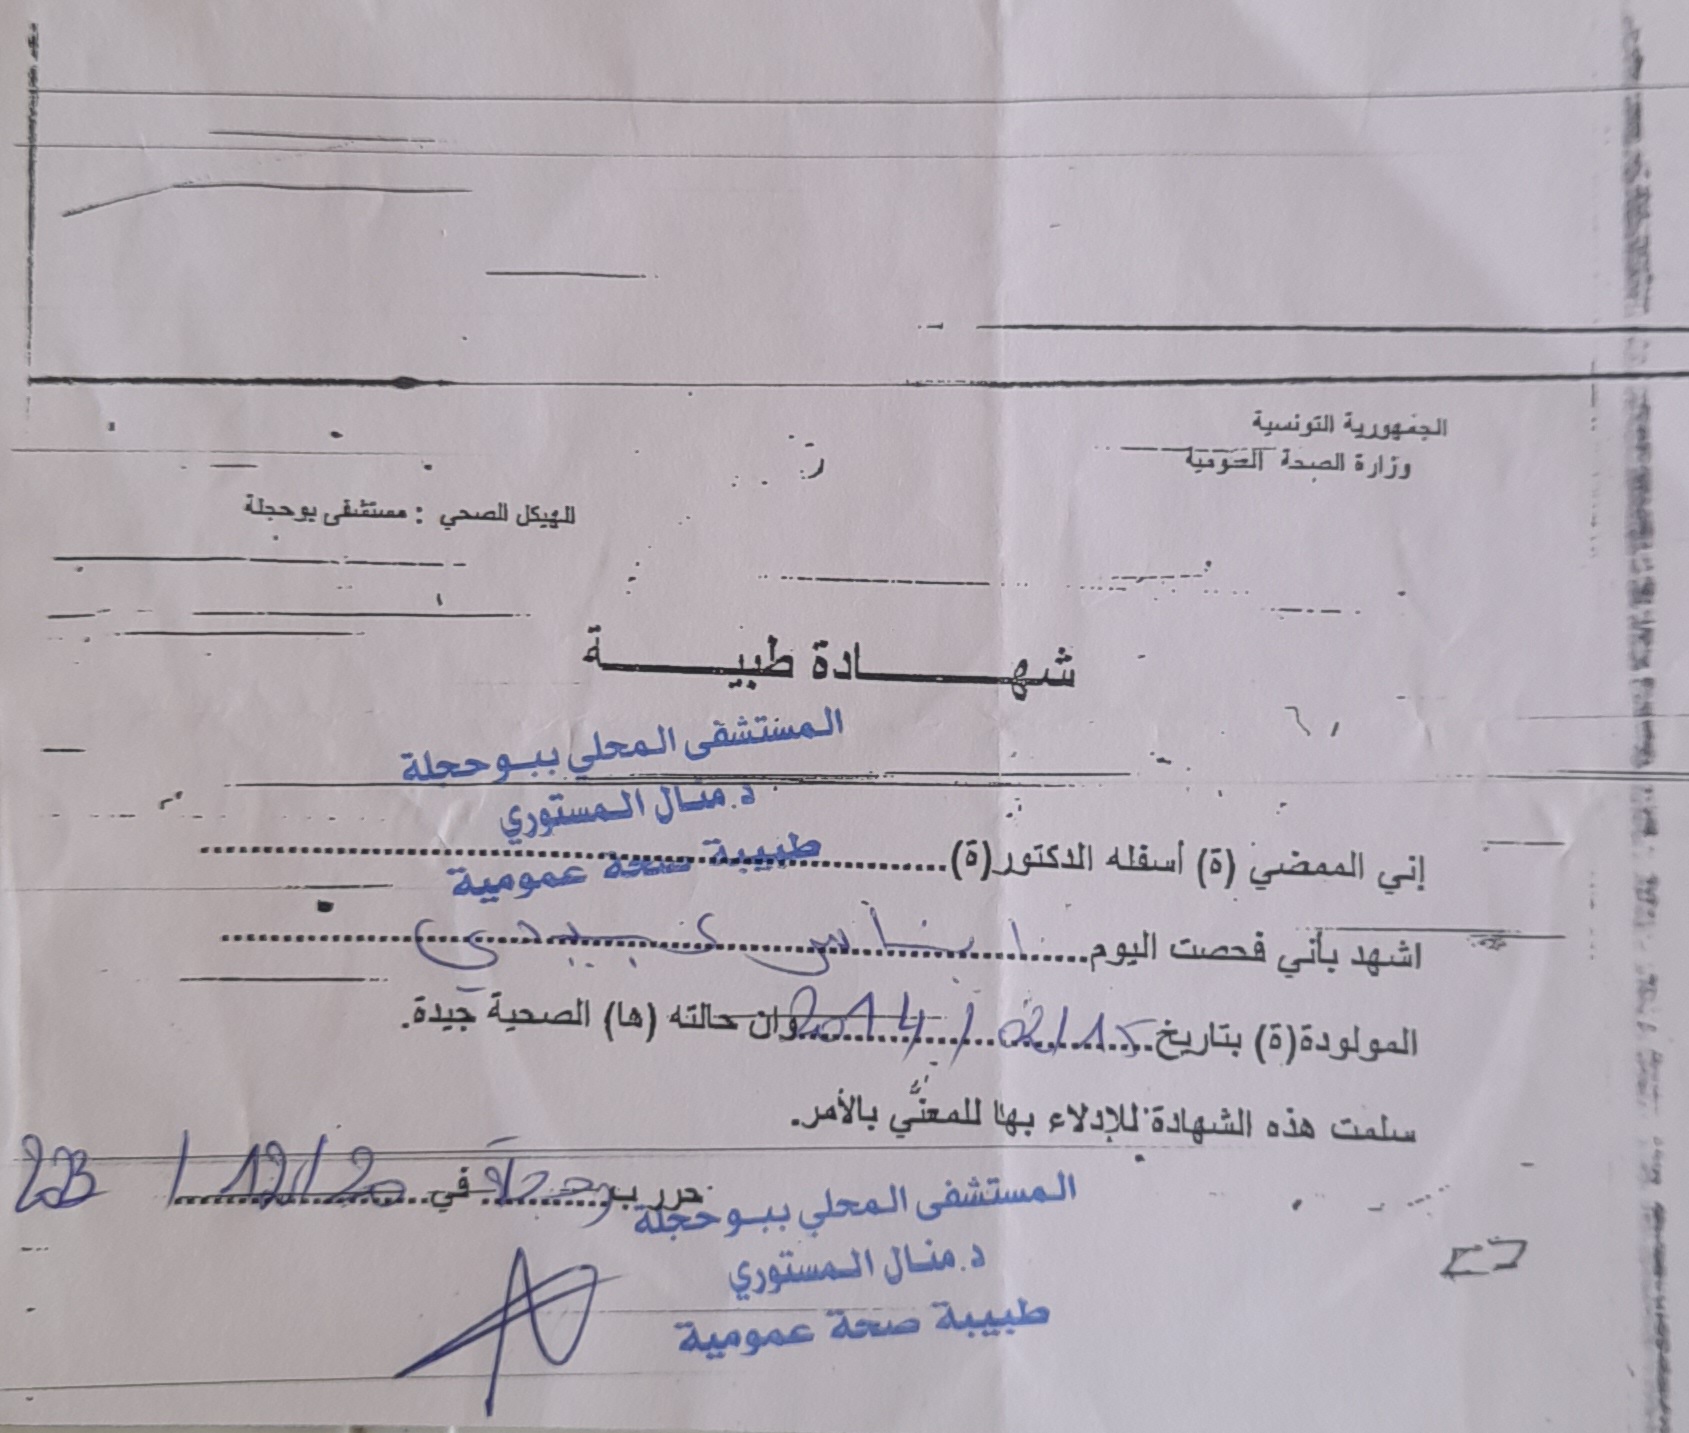 الجمهورية التونسية
وزارة الصحة العمومية
الهيكل الصحي : مستشفى بوحجلة
شهــــــادة طبيــــــة
المستشفى المحلي ببوحجلة
د.منال المستوري
طبيبة صحة عمومية
إني الممضي (ة) أسفله الدكتور(ة)
اشهد بأني فحصت اليوم
المولودة(ة) بتاريخ 2014/02/15 وان حالته (ها) الصحية جيدة.
سلمت هذه الشهادة للإدلاء بها للمعني بالأمر.
حرر ب في 20/12/
المستشفى المحلي ببوحجلة
د.منال المستوري
طبيبة صحة عمومية